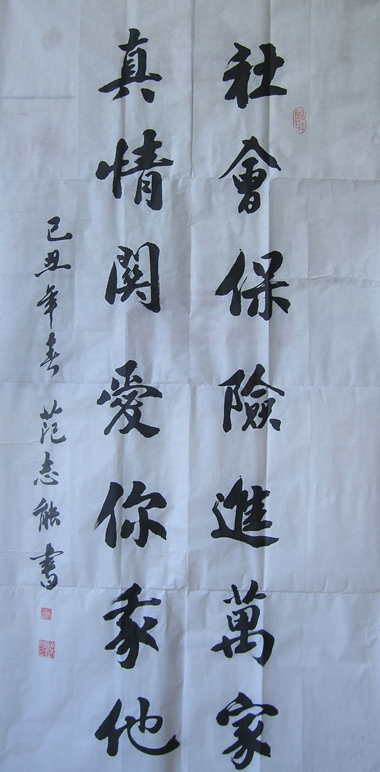 社會保險進萬家
真情関愛你我他
己丑年春范志能書